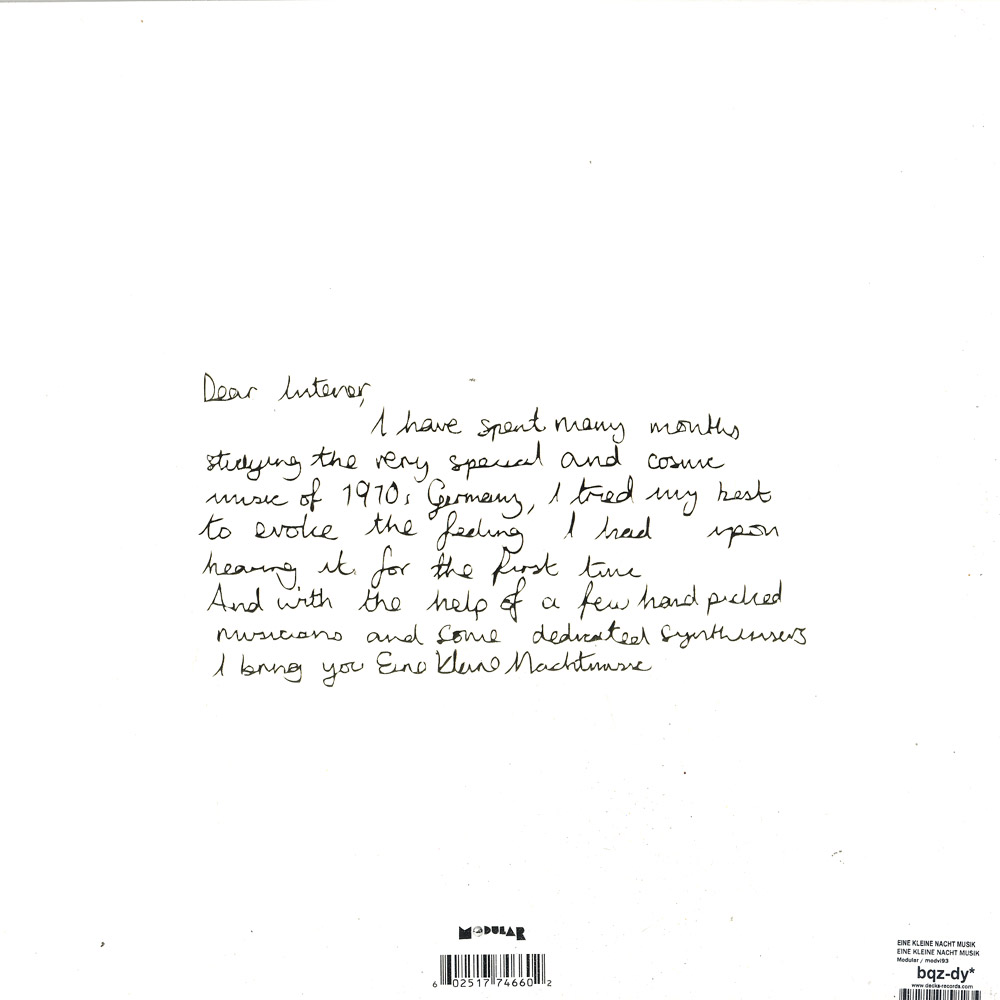 Dear listener,
I have spent many months
studying the very special and cosmic
music of 1970s Germany, I tried my best
to evoke the feeling I had upon
hearing it for the first time
And with the help of a few hand picked
musicians and some dedicated synthesisers
I bring you Eine Kleine Nachtmusic
MODULAR
6 02517 74660 2
EINE KLEINE NACHT MUSIK
EINE KLEINE NACHT MUSIK
Modular / modvl93
bqz-dy*
www.decks-records.com